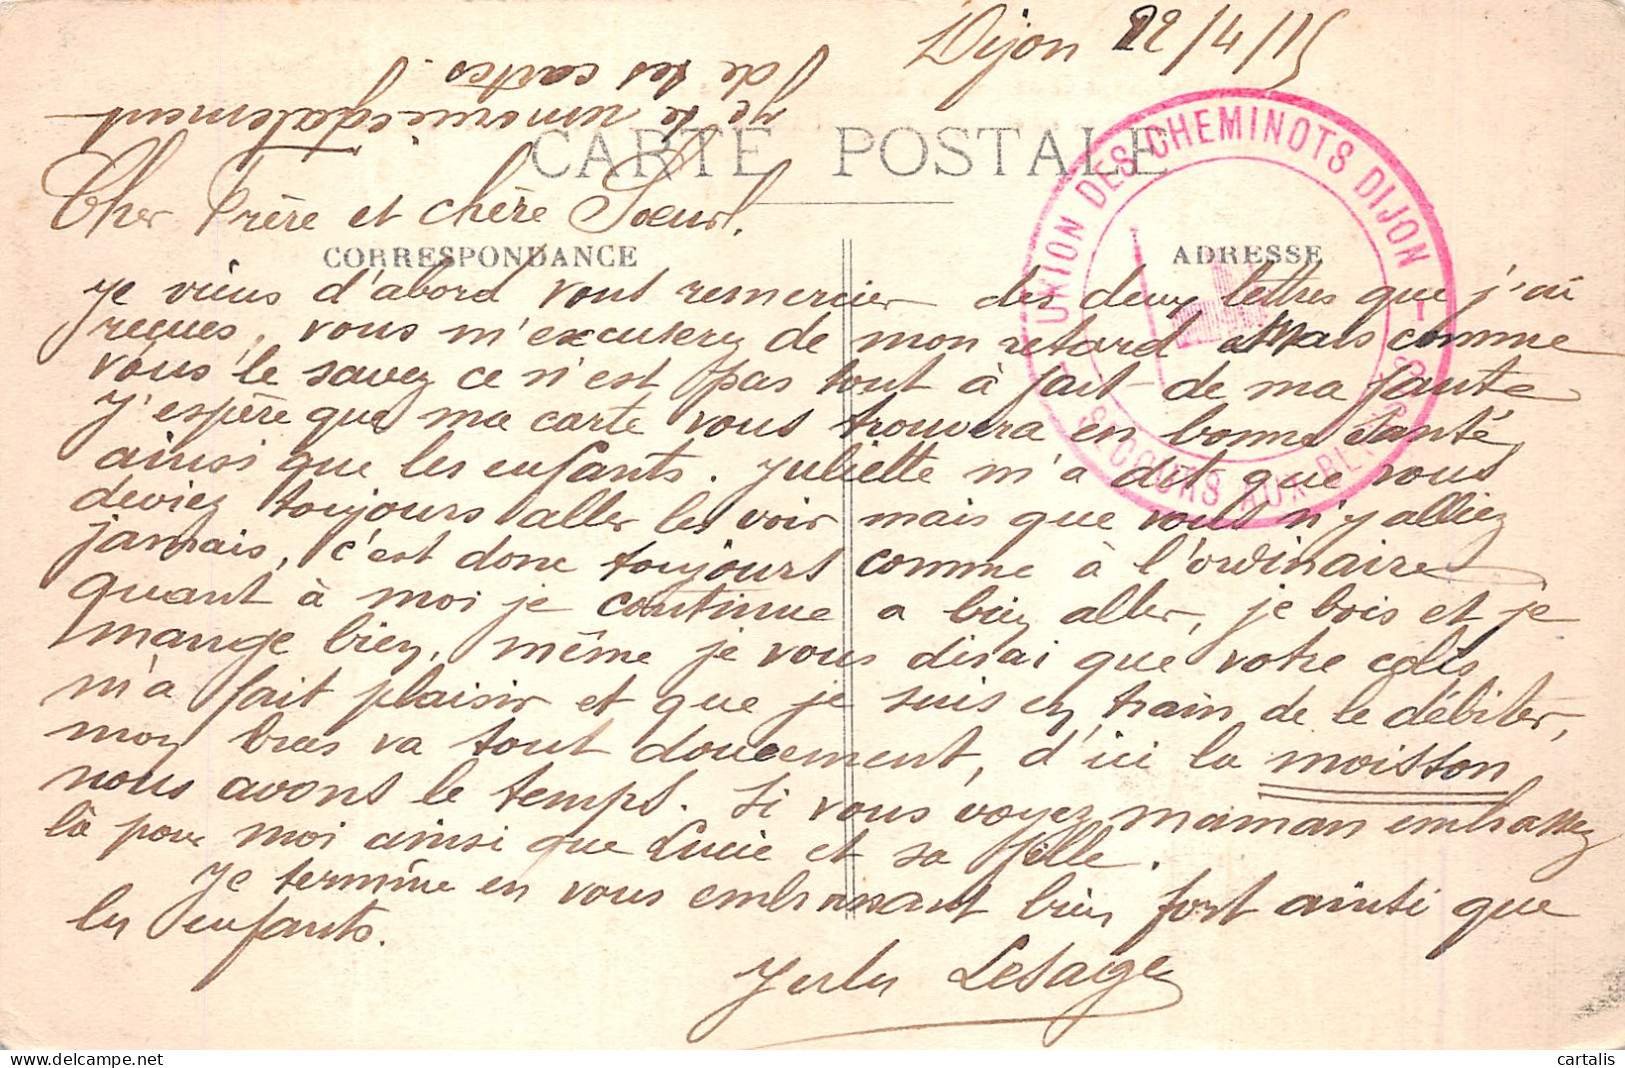 Dijon 22/4/15
je le remercie également
de ses cartes.
CARTE POSTALE
UNION DES CHEMINOTS DIJON
SECOURS AUX BLESSÉS
Cher Frère et chère Sœur.
CORRESPONDANCE
ADRESSE
Je viens d'abord vous remercier des deux lettres que j'ai
reçues, vous m'excuserez de mon retard Mais comme
vous le savez ce n'est pas tout à fait de ma faute
J'espère que ma carte vous trouvera en bonne santé,
ainsi que les enfants. Juliette m'a dit que vous
deviez toujours aller les voir mais que vous n'y alliez
jamais, c'est donc toujours comme à l'ordinaire
quant à moi je continue a bien aller, je bois et je
mange bien, même je vous dirai que votre colis
m'a fait plaisir et que je suis en train de le débiter,
mon bras va tout doucement, d'ici la moisson,
nous avons le temps. Si vous voyez maman embrassez
là pour moi ainsi que Lucie et sa fille.
Je termine en vous embrassant bien fort ainsi que
les enfants.
Jules Lesage
cartalis